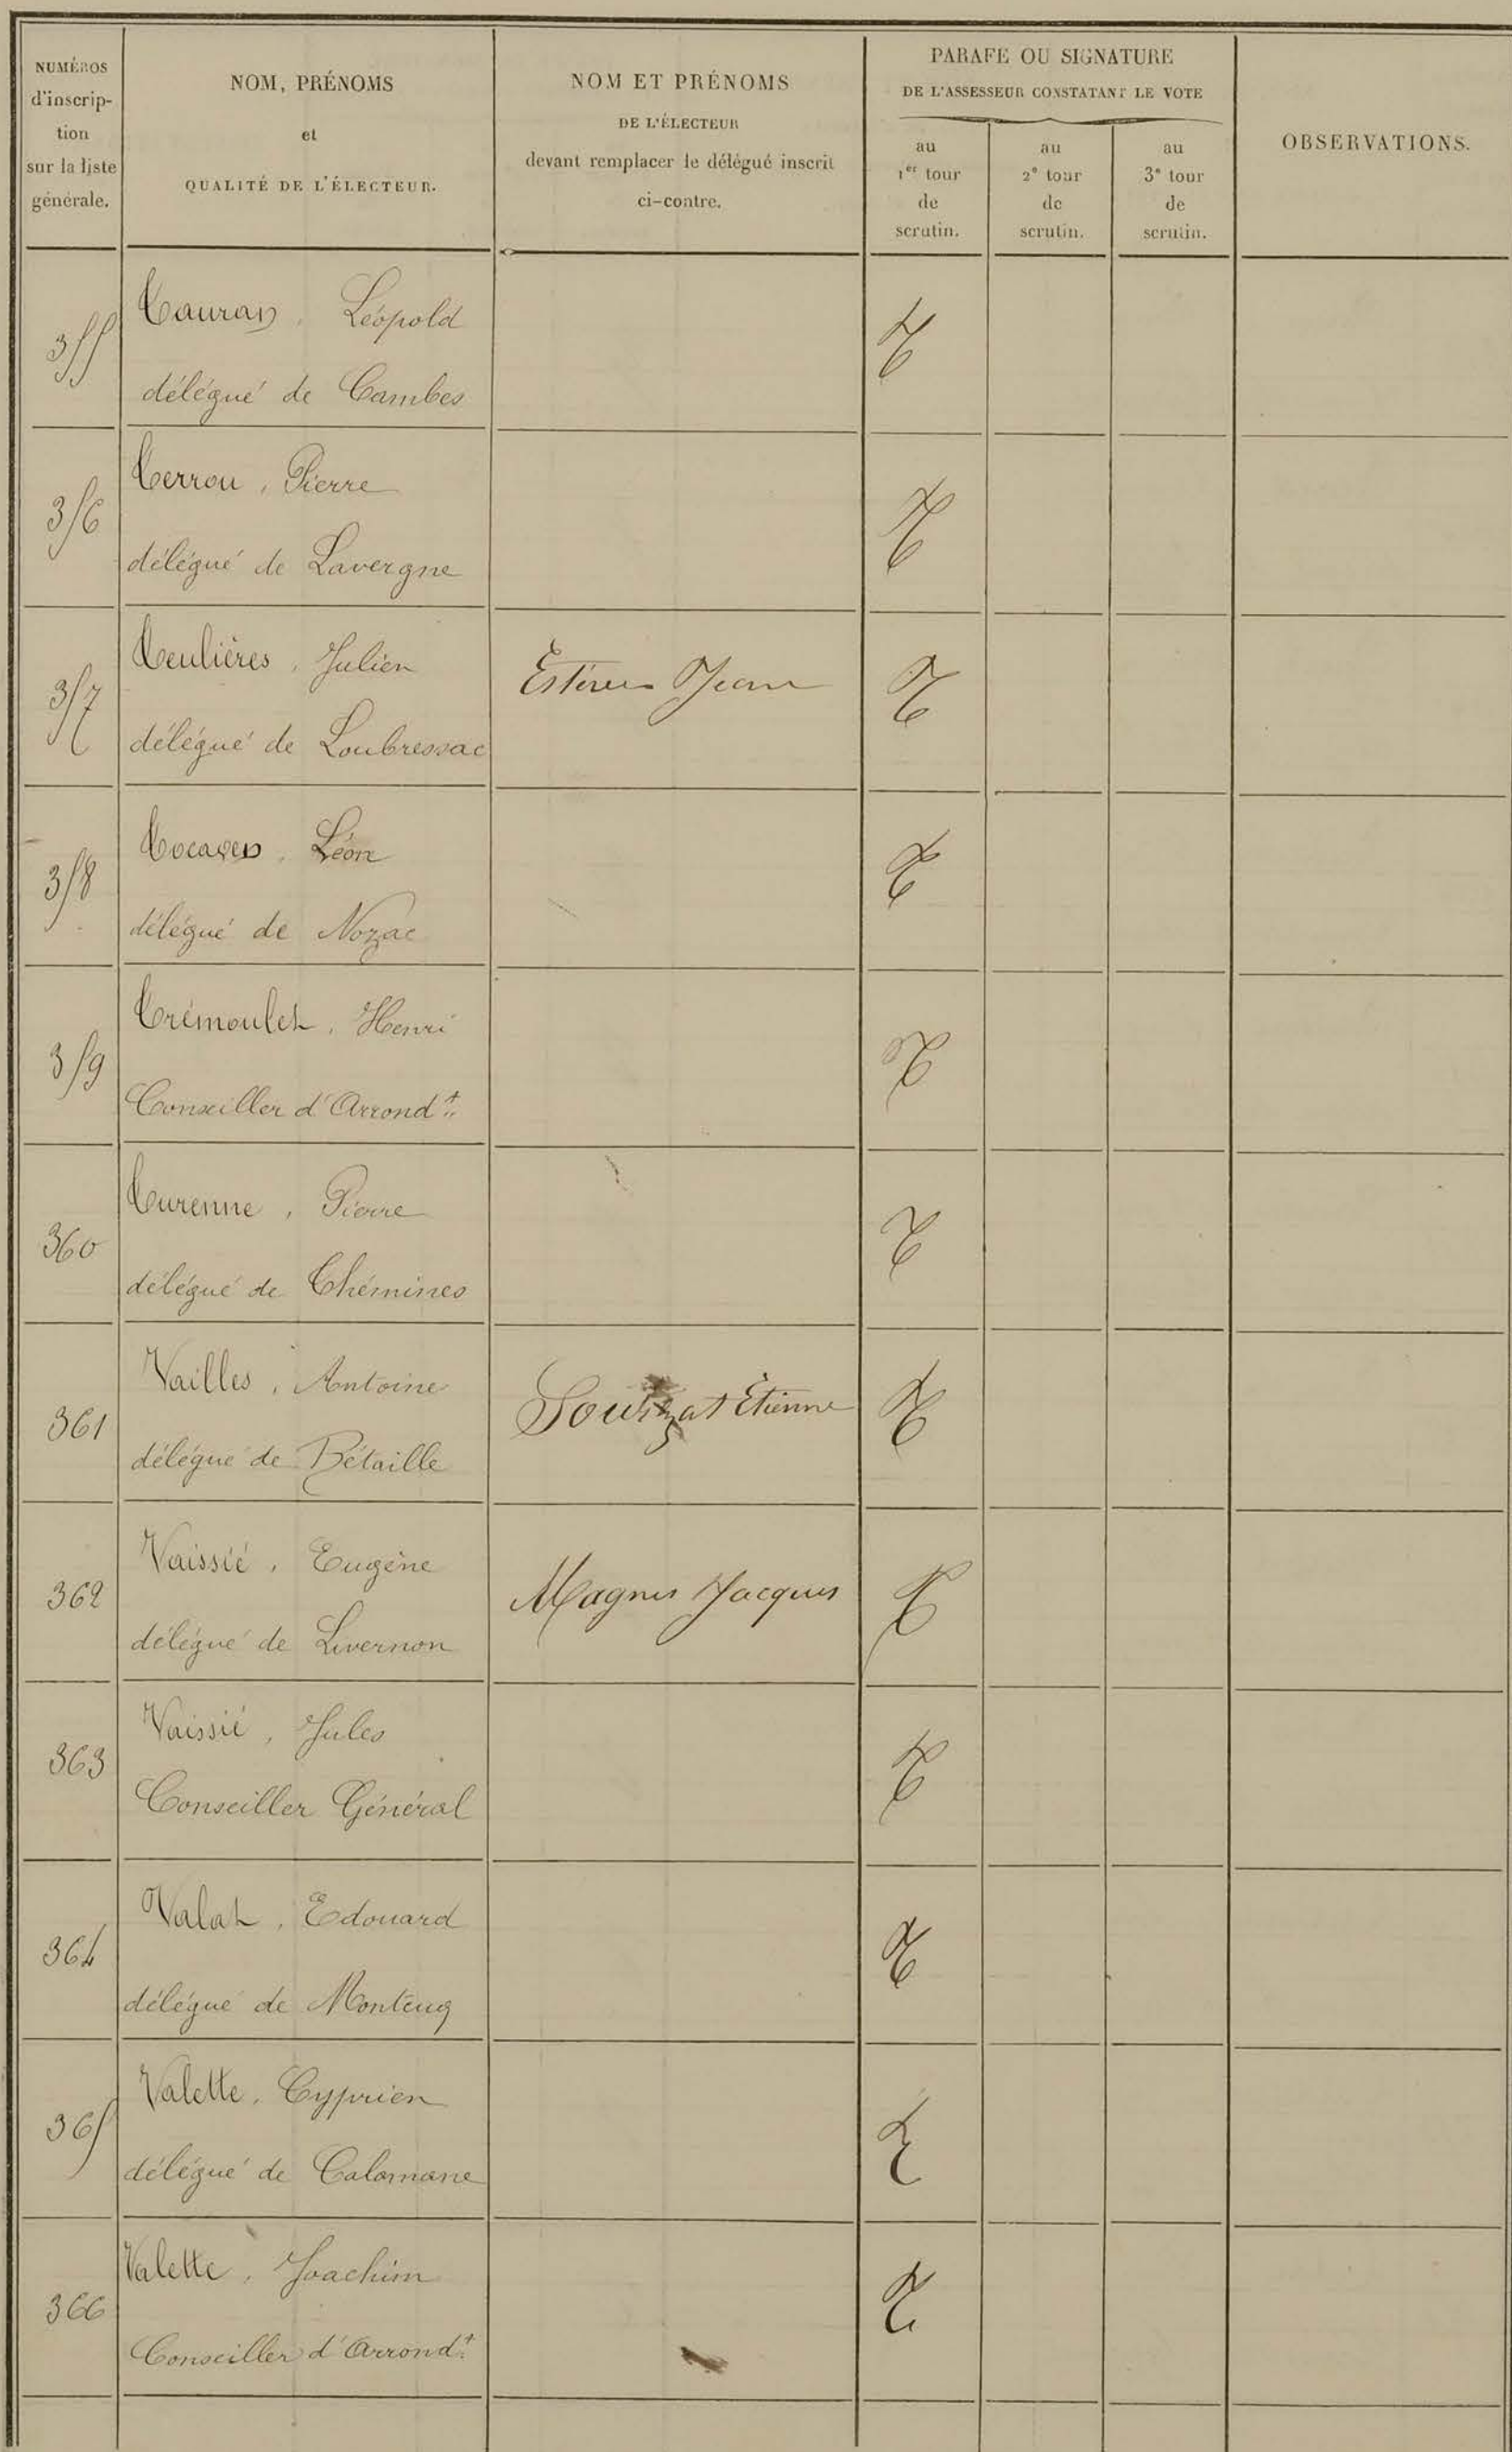 NUMÉROS
d'inscrip-
tion
sur la liste
générale.
NOM, PRÉNOMS
et
QUALITÉ DE L'ÉLECTEUR.
NOM ET PRÉNOMS
DE L'ÉLECTEUR
devant remplacer le délégué inscrit
ci-contre.
PARAFE OU SIGNATURE
DE L'ASSESSEUR CONSTATANT LE VOTE
au
1er tour
de
scrutin.
au
2e tour
de
scrutin.
au
3e tour
de
scrutin.
OBSERVATIONS.
355
Tauran, Léopold
délégué de Cambes
356
Terrou, Pierre
délégué de Lavergne
357
Teulières, Julien
délégué de Loubressac
Jean
358
Tocaven, Léon
délégué de Nozac
359
Trémoulet, Henri
Conseiller d'Arrondt
360
Turenne, Pierre
délégué de Thémines
361
Vailles, Antoine
délégué de Bétaille
Etienne
362
Vaissié, Eugène
délégué de Livernon
Magnes Jacques
363
Vaissié, Jules
Conseiller Général
364
Valat, Edouard
délégué de Montcuq
365
Valette, Cyprien
délégué de Calamane
366
Valette, Joachim
Conseiller d'Arrondt